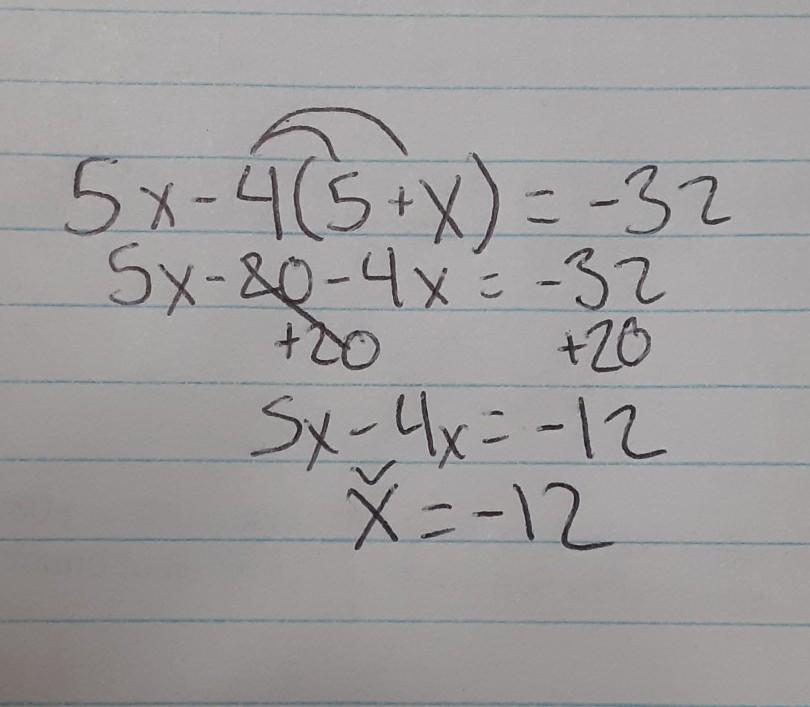 5x-4(5+x) = -32
5x-20-4x = -32
+20 +20
5x-4x = -12
x = -12